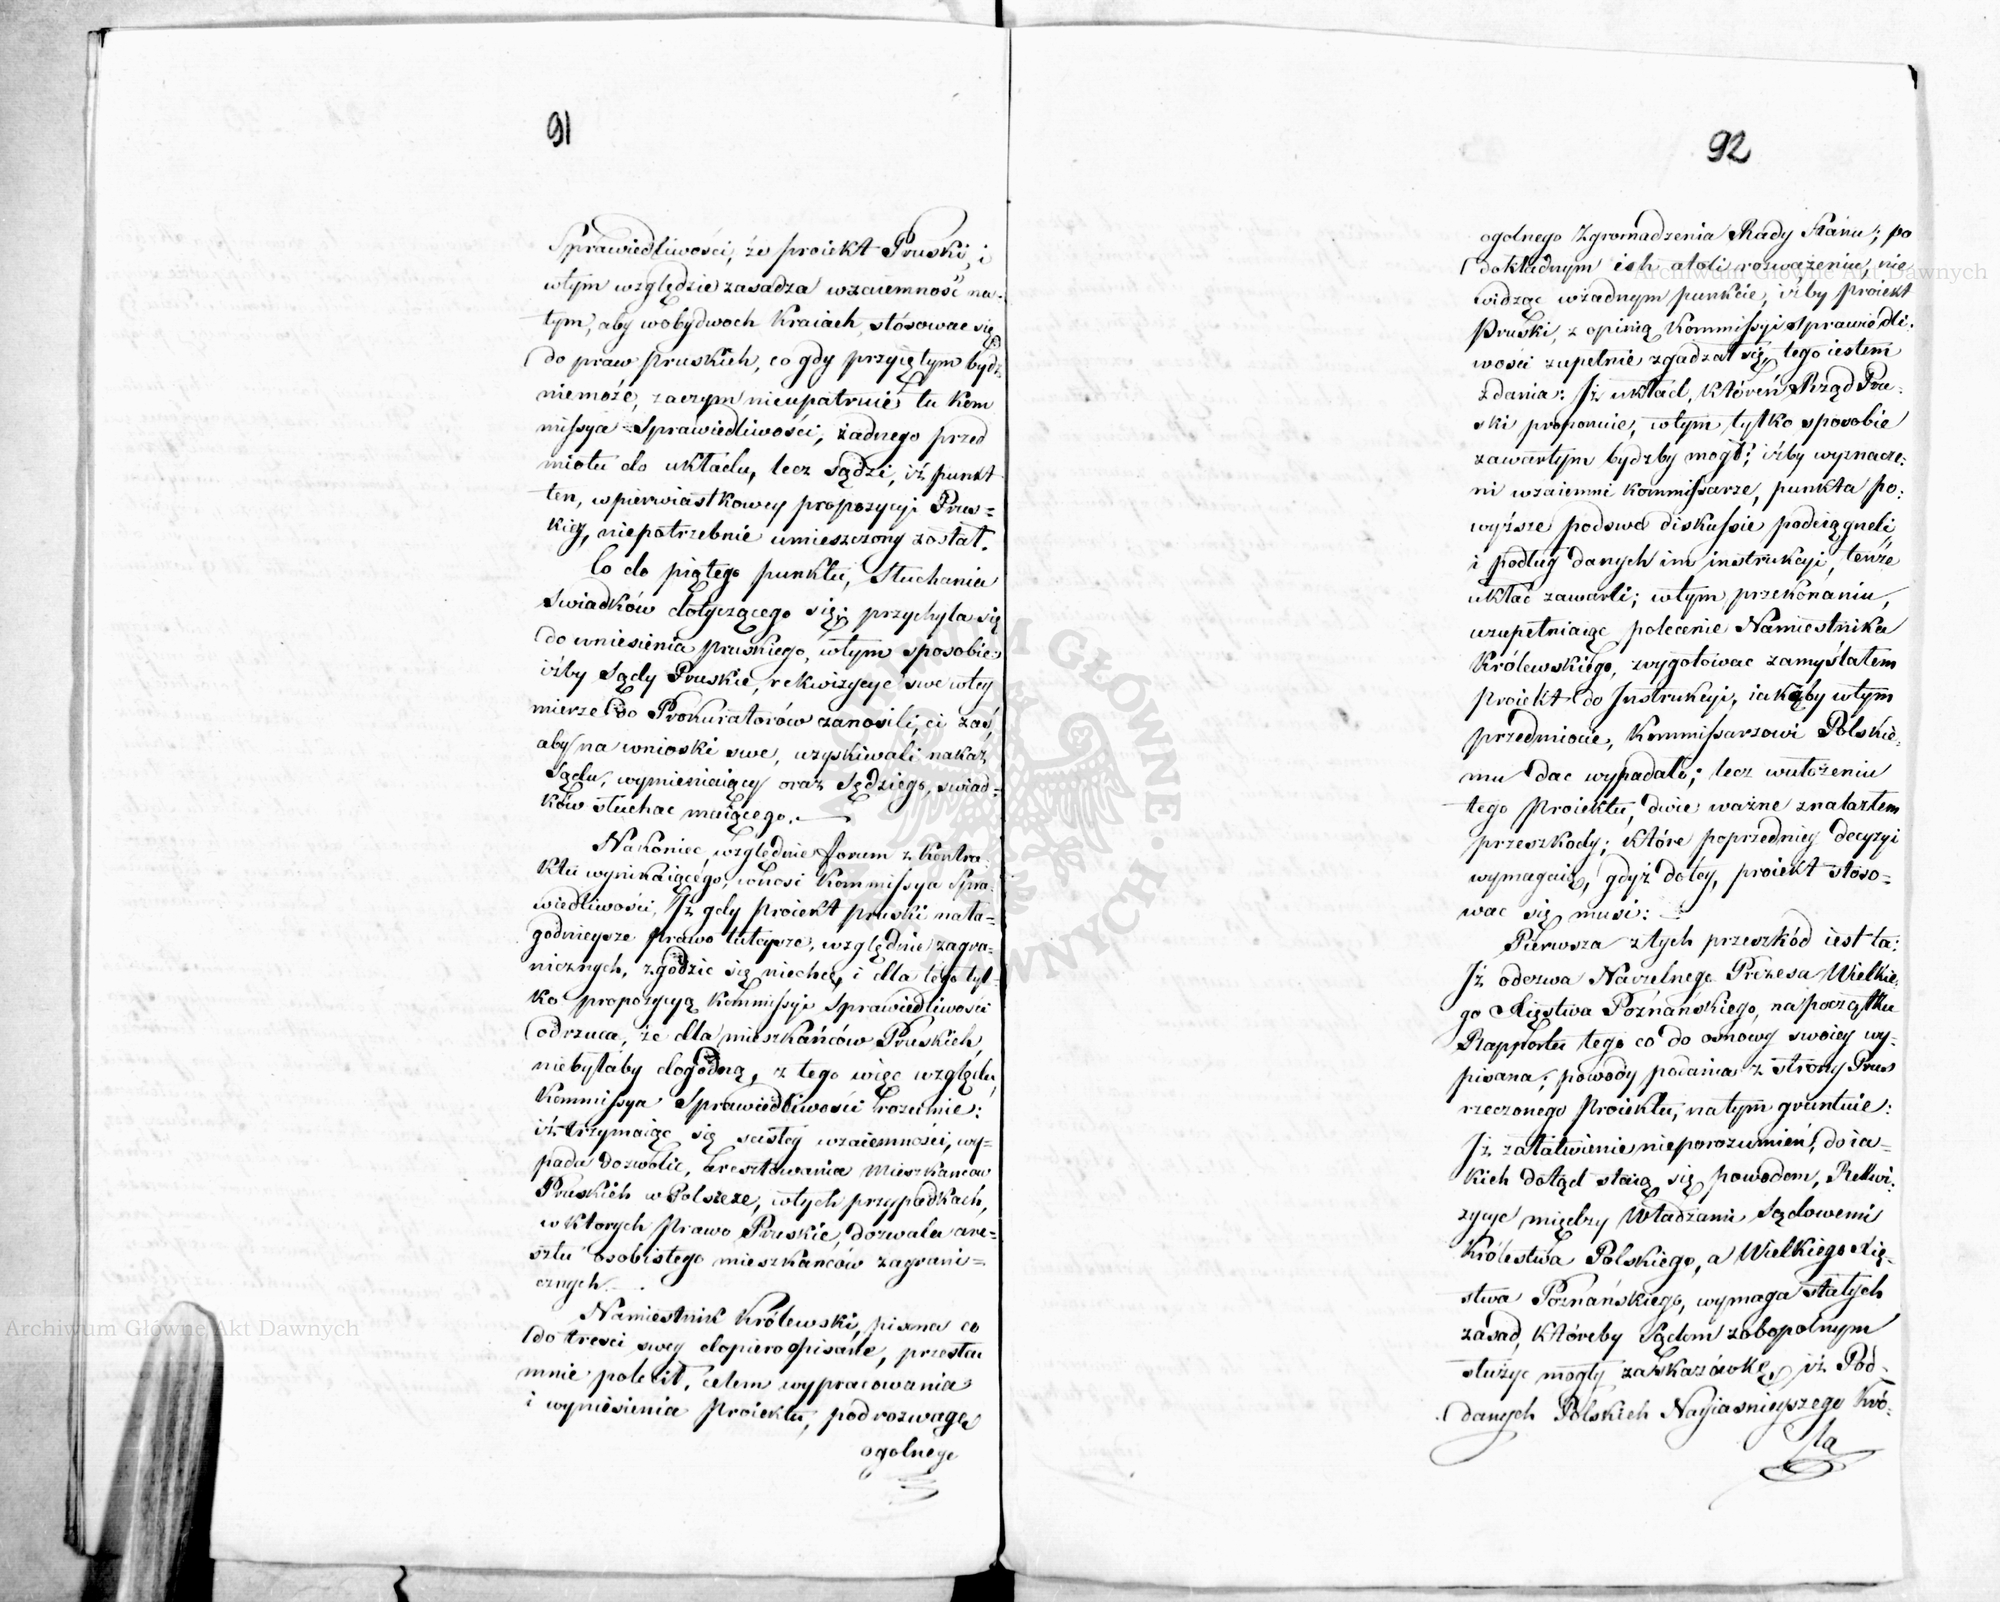 91
Sprawiedliwości, że proiekt Pruski, i
wtym względzie zasadza wzaiemność na-
tym, aby wobydwoch Kraiach, stósować się
do praw pruskich, co gdy przyiętym bydź
niemoże, zaczym nieupatruie tu Kom
missya Sprawiedliwości, żadnego przed
miotu do układu, lecz sądzi, iż punkt
ten, wpierwiastkowey propozycyi Prus=
kiey, niepotrzebnie umieszczony został.
Co do piątego punktu, słuchania
swiadków dotyczącego się; przychyla się
do wniesienia pruskiego, wtym sposobie:
iżby Sądy Pruskie, rekwizycye swe wtey
mierze do Prokuratorów zanosili, ci zaś,
aby na wnioski swe, uzyskiwali nakaz
Sądu, wymieniaiący oraz Sędziego, swiad=
ków słuchać maiącego.
Nakoniec, względnie forum z kontra-
ktu wynikaiącego, wnosi Kommissya Spra-
wiedliwości, Iż gdy Proiekt pruski na ła=
godnieysze prawo tuteysze, względnie zagra-
nicznych, zgodzić się niechce, i dla tego tyl-
ko propozycyą Kommissyi Sprawiedliwości
odrzuca, że dla mieszkańców Pruskich
niebyłaby dogodną, z tego więc względu,
Kommissya Sprawiedliwości rozumie:
iż trzymaiąc się scisłey wzaiemności, wy-
pada dozwolić, aresztowania Mieszkańców
Pruskich w Polszcze, wtych przypadkach,
w ktorych Prawo Pruskie, dozwala are-
sztu osobistego mieszkańców zagrani=
cznych.
Namiestnik Królewski, pisma co
do tresci swey dopiero opisane, przesłać
mnie polecił, celem wypracowania
i wyniesienia Proiektu, pod rozwagę
ogolnego
92
ogolnego Zgromadzenia Rady Stanu; po
dokładnym ich atoli rozważeniu, nie
widząc wżadnym punkcie, iżby proiekt
Pruski, z opinią Kommissyi Sprawiedli-
wości zupełnie zgadzał się, tego iestem
zdania: Iż układ, któren Rząd Pru-
ski proponuie, wtym tylko sposobie
zawartym bydźby mogł; iżby wyznacze-
ni wzaiemni Kommissarze, punkta po-
wyższe pod swą diskussie podciągneli
i podług danych im instrukcyi, tenże
układ zawarli; wtym przekonaniu,
uzupełniaiąc polecenie Namiestnika
Królewskiego, zwygotować zamyślałem
proiekt do Instrukcyi, iakąby wtym
przedmiocie, Kommissarzowi Polskie-
mu dać wypadało; lecz wułożeniu
tego Proiektu, dwie ważne znalazłem
przeszkody; które poprzedniey decyzyi
wymagaią, gdyż do tey, proiekt stóso=
wać się musi:
Pierwsza z tych przeszkód iest ta:
Iż odezwa Naczelnego Prezesa Wielkie-
go Xięstwa Poznańskiego, na początku
Rapportu tego co do osnowy swoiey wy-
pisana; powody podania z strony Prus
rzeczonego Proiektu, na tym gruntuie:
Iż załatwienie nieporozumień, do ia-
kich dotąd staią się powodem, Rekwi-
zycye między Władzami Sądowemi
Królestwa Polskiego, a Wielkiego Xię-
stwa Poznańskiego, wymaga stałych
zasad, któreby Sądom zobopolnym
służyć mogły za skazówkę, iż Pod-
danych Polskich Nayiasnieyszego Kró-
la